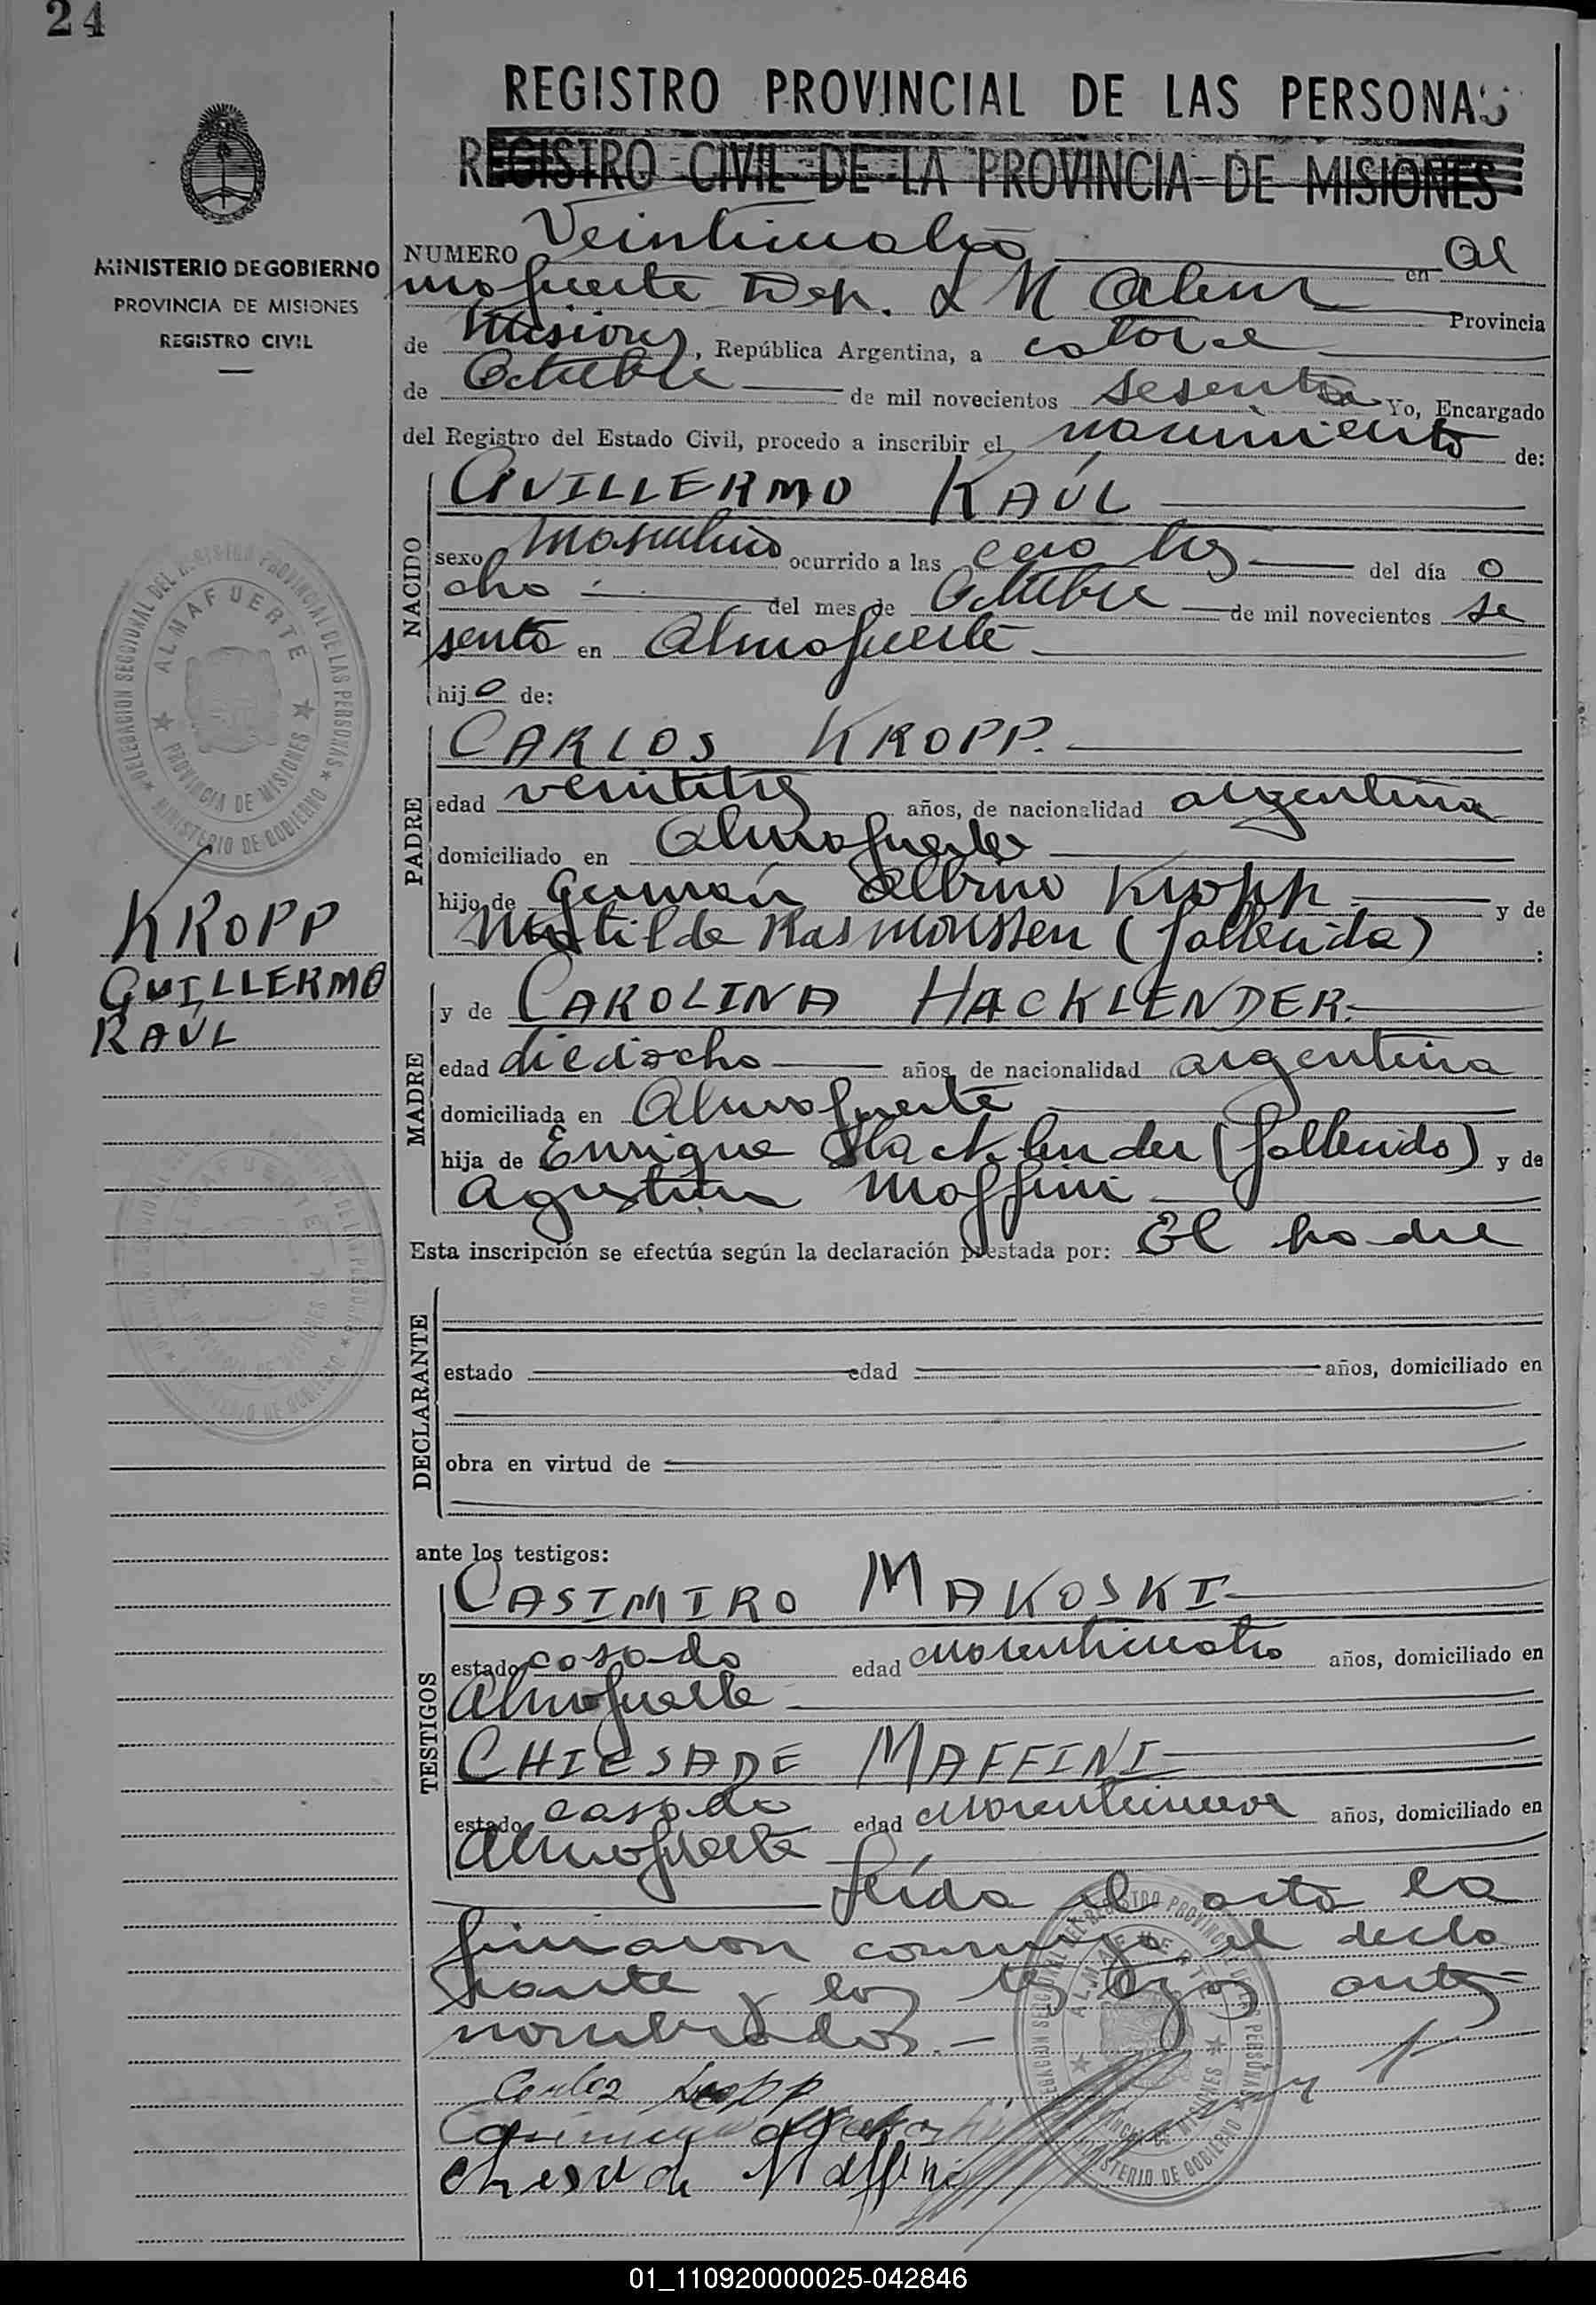 24
REGISTRO PROVINCIAL DE LAS PERSONAS
REGISTRO CIVIL DE LA PROVINCIA DE MISIONES
MINISTERIO DE GOBIERNO
PROVINCIA DE MISIONES
REGISTRO CIVIL
NUMERO Veinticuatro en Al
mafuerte Dep. L N Alem Provincia
de Misiones, República Argentina, a catorce
de Octubre de mil novecientos sesenta Yo, Encargado
del Registro del Estado Civil, procedo a inscribir el nacimiento de:
NACIDO
GUILLERMO RAÚL
sexo masculino ocurrido a las cero tres del día o
cho del mes de Octubre de mil novecientos se
senta en Almafuerte
hijo de:
PADRE
CARLOS KROPP.
edad veintitres años, de nacionalidad argentina
domiciliado en Almafuerte
hijo de Germán Albino Kropp y de
Matilde Rasmussen (fallecida) :
KROPP
GUILLERMO
RAÚL
MADRE
y de CAROLINA HACKLENDER.
edad dieciocho años, de nacionalidad argentina
domiciliada en Almafuerte
hija de Enrique Hacklender (fallecido) y de
Agustina Maffini
Esta inscripción se efectúa según la declaración prestada por: El padre
DECLARANTE
estado edad años, domiciliado en
obra en virtud de
ante los testigos:
TESTIGOS
CASIMIRO MAKOSKI
estado casado edad cuarenticuatro años, domiciliado en
Almafuerte
CHIESADE MAFFINI
estado casado edad cuarentinueve años, domiciliado en
Almafuerte
Leída el acta la
firmaron conmigo el decla
rante y los testigos antes
nombrados.-
Carlos Kropp
Chesade Maffini
DELEGACION SECCIONAL DEL REGISTRO PROVINCIAL DE LAS PERSONAS
ALMAFUERTE
PROVINCIA DE MISIONES
MINISTERIO DE GOBIERNO
01_110920000025-042846